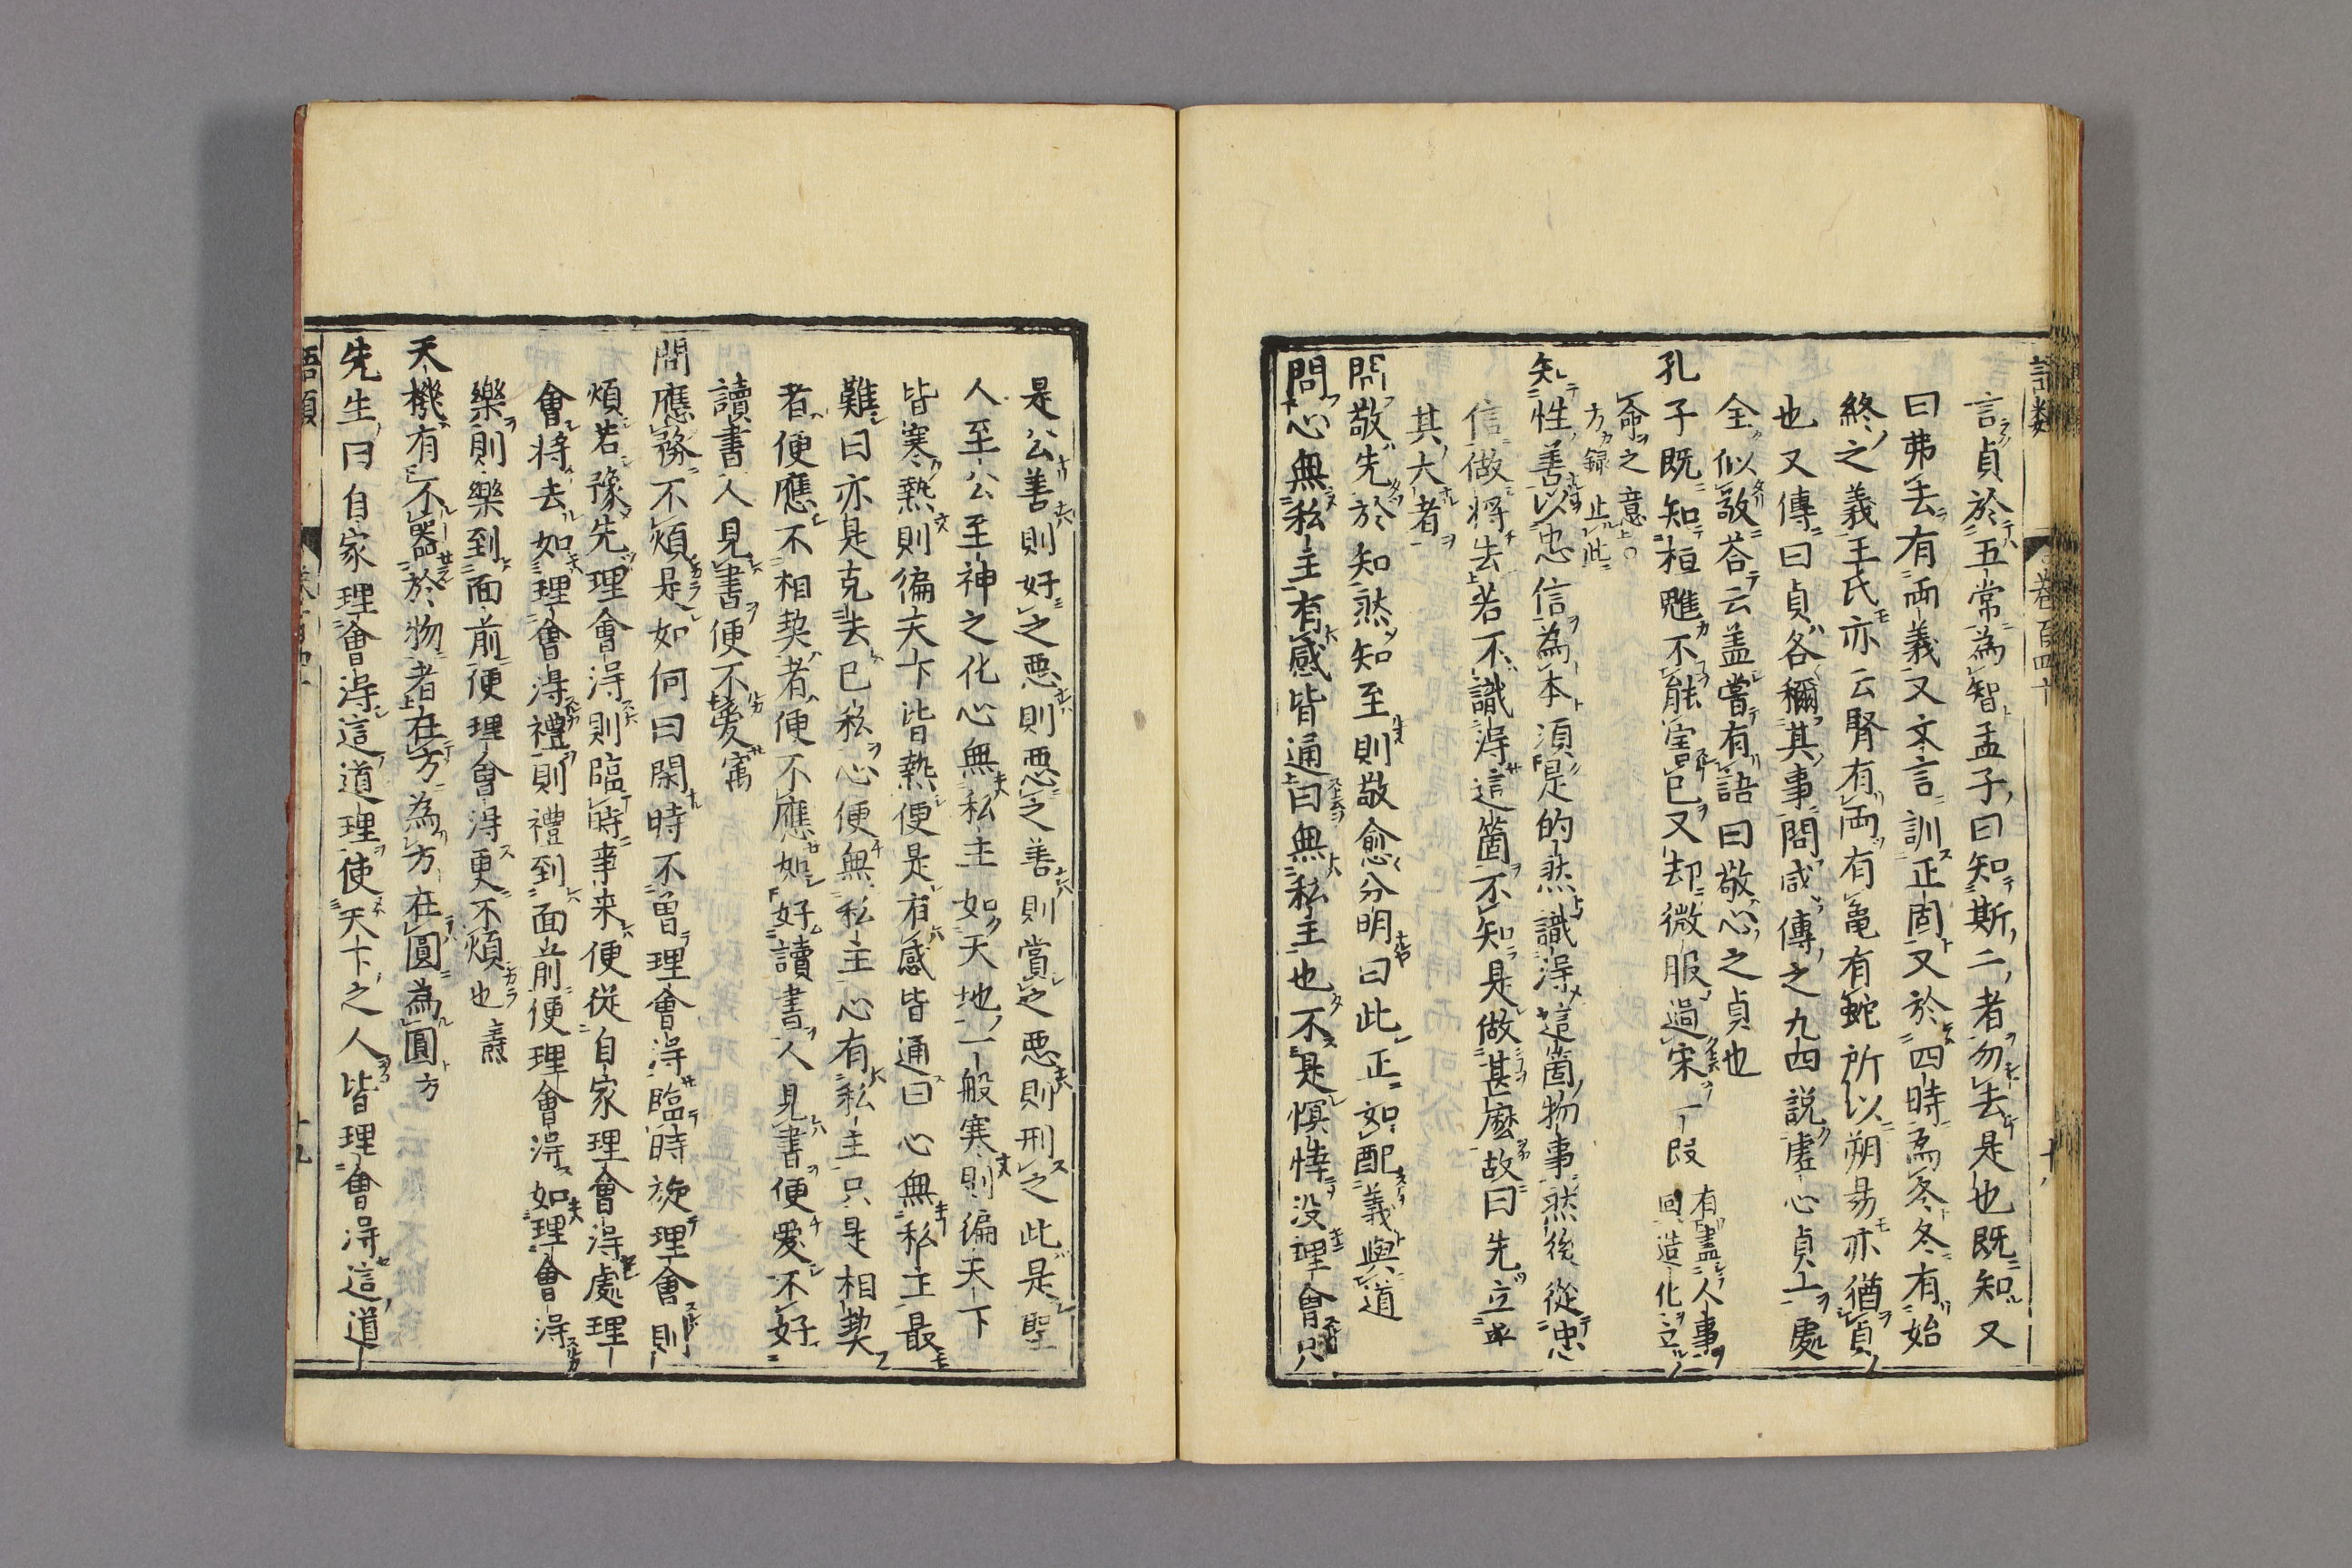 語類
卷百四十
言貞於五常為智孟子曰知斯二者勿去是也既知又
曰弗去有兩義又文言訓正固又於四時為冬冬有始
終之義王氏亦云腎有兩有龜有蛇所以朔易亦猶貞
也又傳曰貞各稱其事問咸傳之九四說虛心貞一處
全似敬荅云盖嘗有語曰敬心之貞也
孔子既知桓魋不能害已又却微服過宋一段
有盡人事
回造化立
命之意
方録止此
知性善以忠信為本須是的然識淂這箇物事然後從忠
信做將去若不識淂這箇不知是做甚麽故曰先立乎
其大者
問敬先於知然知至則敬愈分明曰此正如配義與道
問心無私主有感皆通曰無私主也不是㒹悻没理會只
是公善則好之惡則惡之善則賞之惡則刑之此是聖
人至公至神之化心無私主如天地一般寒則徧天下
皆寒熱則徧天下皆熱便是有感皆通曰心無私主最
難曰亦是克去已私心便無私主心有私主只是相契
者便應不相契者便不應如好讀書人見書便愛不好
讀書人見書便不愛㝢
問應務不煩是如何曰閑時不曽理會淂臨時旋理會則
煩若豫先理會淂則臨時事来便從自家理會淂處理
會將去如理會淂禮則禮到面前便理會淂如理會淂
樂則樂到面前便理會淂更不煩也燾
天機有不器於物者在方為方在圓為圓方
先生曰自家理會淂這道理使天下之人皆理會淂這道
語類
十九